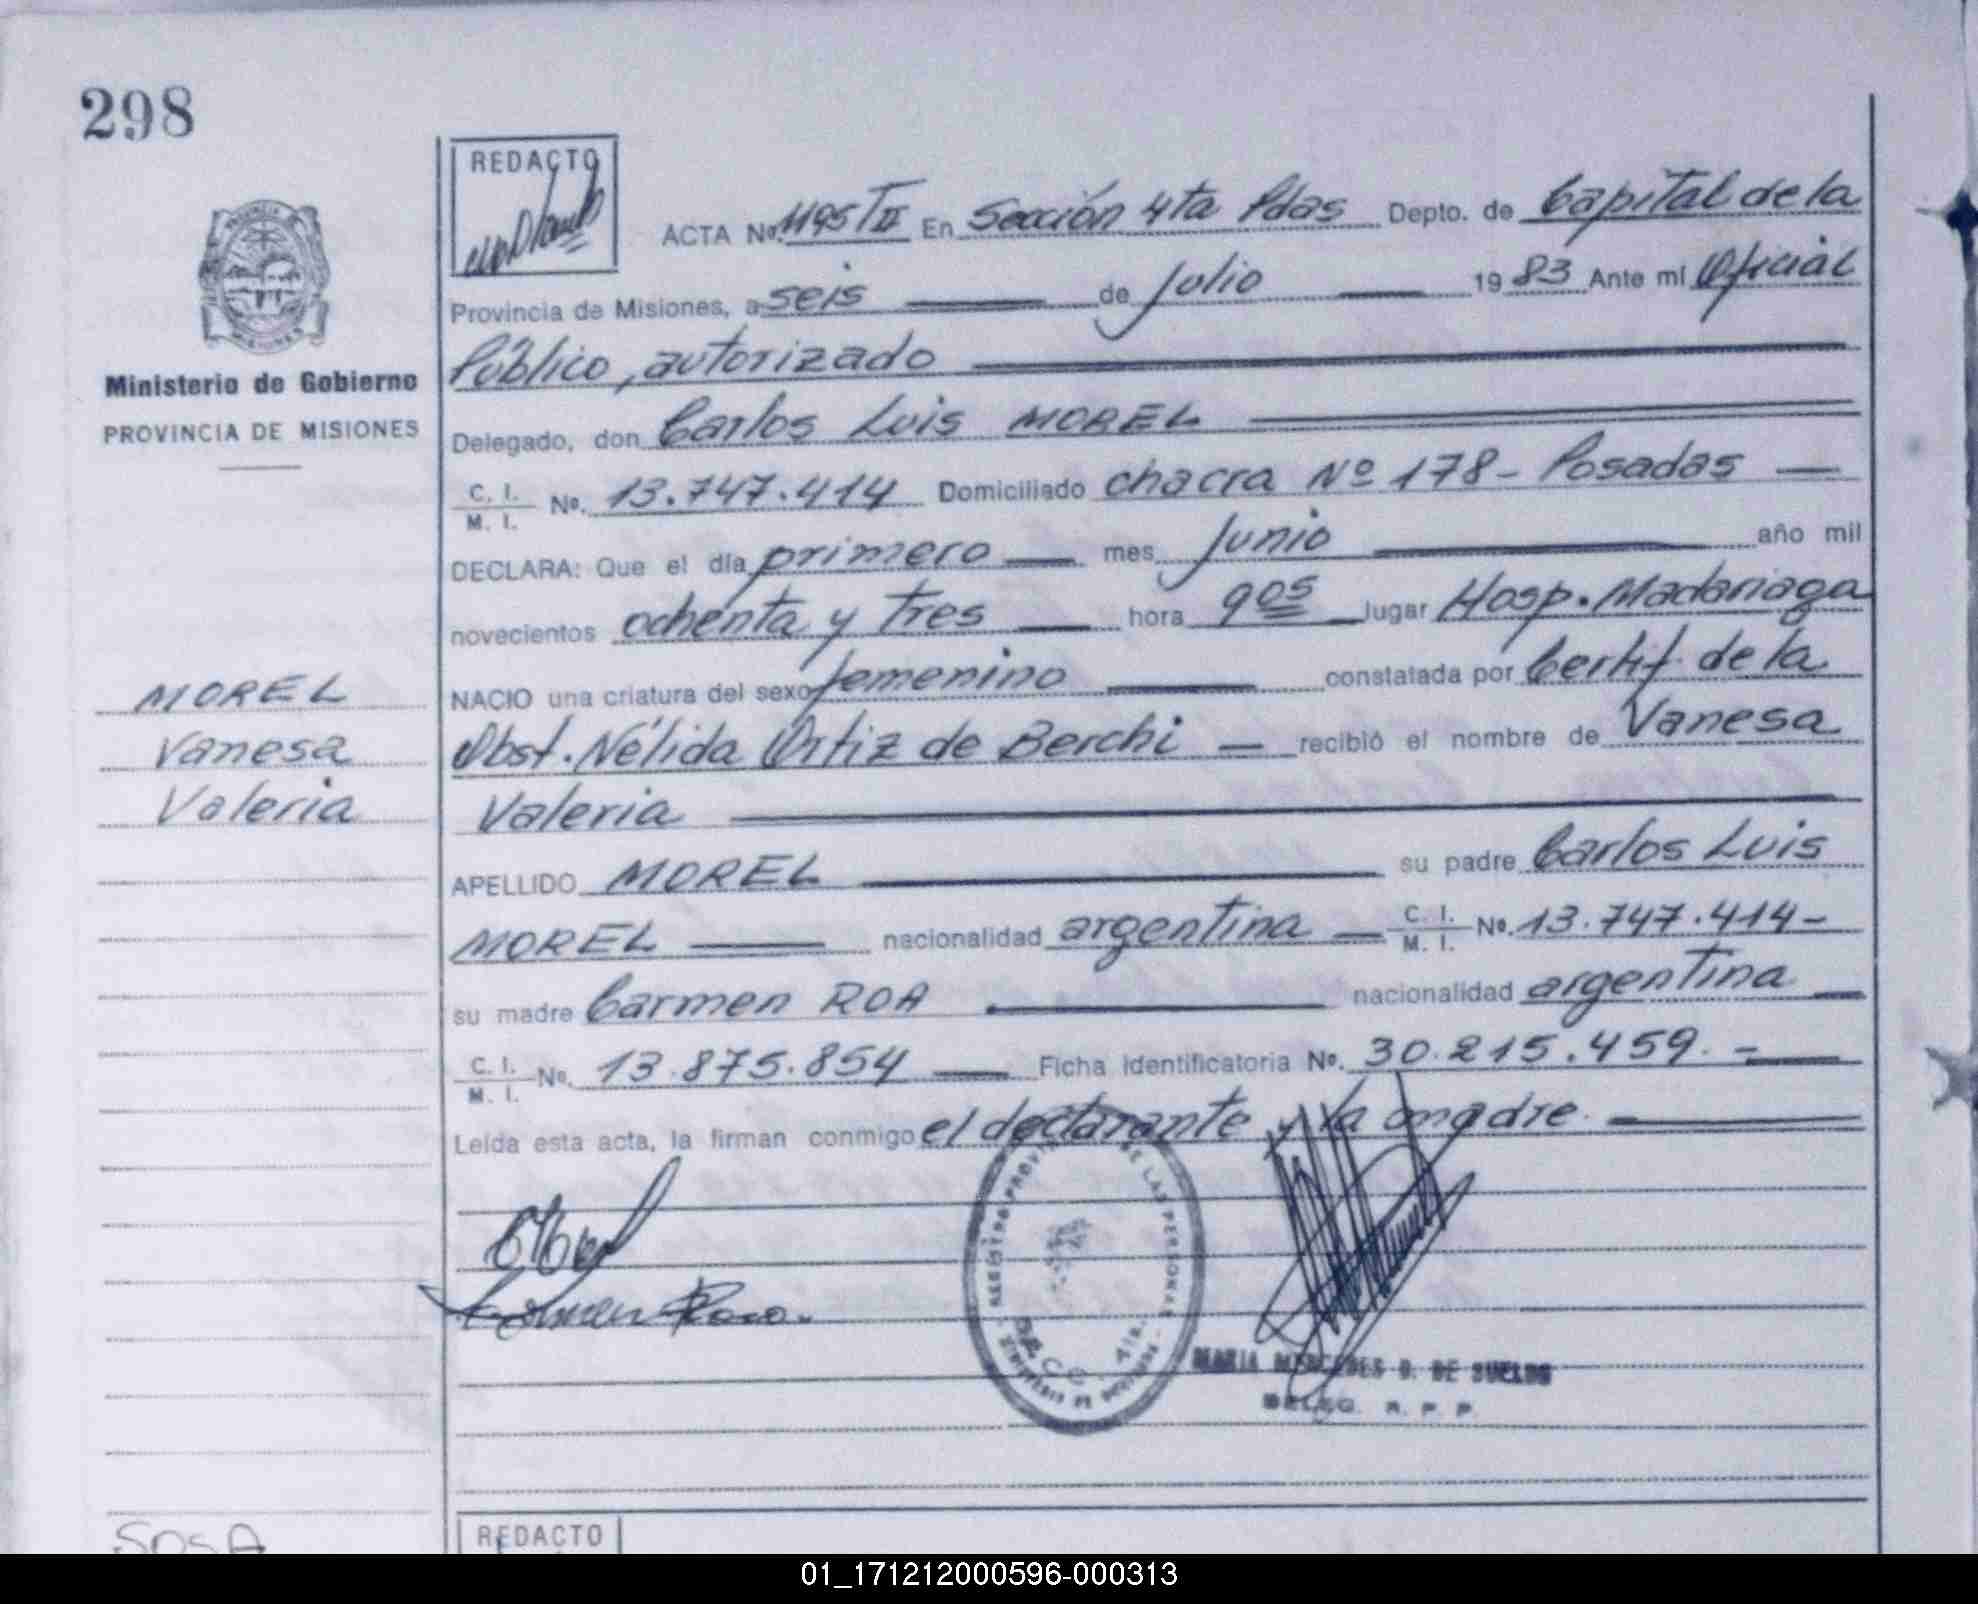 298
REDACTO
ACTA No. 1195 T II En Sección 4ta Pdas Depto. de Capital de la
Provincia de Misiones, a seis de Julio 19 83 Ante mi Oficial
Público, autorizado
Delegado, don Carlos Luis MOREL
C. I. / M. I. No. 13.747.414 Domiciliado chacra Nº 178 - Posadas
DECLARA: Que el día primero mes Junio año mil
novecientos ochenta y tres hora 9 05 lugar Hosp. Madariaga
NACIO una criatura del sexo femenino constatada por Certif. de la
Obst. Nélida Ortiz de Berchi recibió el nombre de Vanesa
Valeria
APELLIDO MOREL su padre Carlos Luis
MOREL nacionalidad argentina C. I. / M. I. No. 13.747.414 -
su madre Carmen ROA nacionalidad argentina
C. I. / M. I. No. 13.875.854 Ficha identificatoria No. 30.215.459. -
Leída esta acta, la firman conmigo el declarante y la madre.
Carmen Roa.
REGISTRO PROV. DE LAS PERSONAS
MARIA MERCEDES D. DE SUELDO
DELEG. R. P. P.
PROVINCIA DE MISIONES
Ministerio de Gobierno
PROVINCIA DE MISIONES
MOREL
Vanesa
Valeria
SOSA
REDACTO
01_171212000596-000313